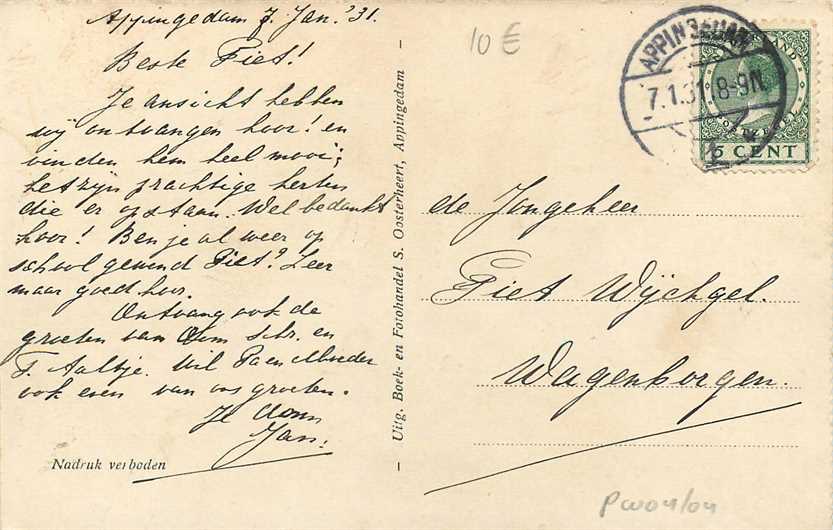 Appingedam 7. Jan. '31.
Beste Piet!
Je ansicht hebben
wij ontvangen hoor! en
vinden hem heel mooi;
het zijn prachtige herten
die er op staan. Wel bedankt
hoor! Ben je al weer op
school gewend Piet? Leer
maar goed hoor.
Ontvang ook de
groeten van Oom Schr. en
T. Aaltje. Wil Pa en Moeder
ook even van ons groeten.
Je
Jan.
Nadruk verboden
Uitg. Boek- en Fotohandel S. Oosterheert, Appingedam
10 €
APPINGEDAM
7.1.31 8-9N
1
POSTZEGEL
5 CENT
de Jongeheer
Piet Wijchgel.
Wagenborgen.
pw04/04